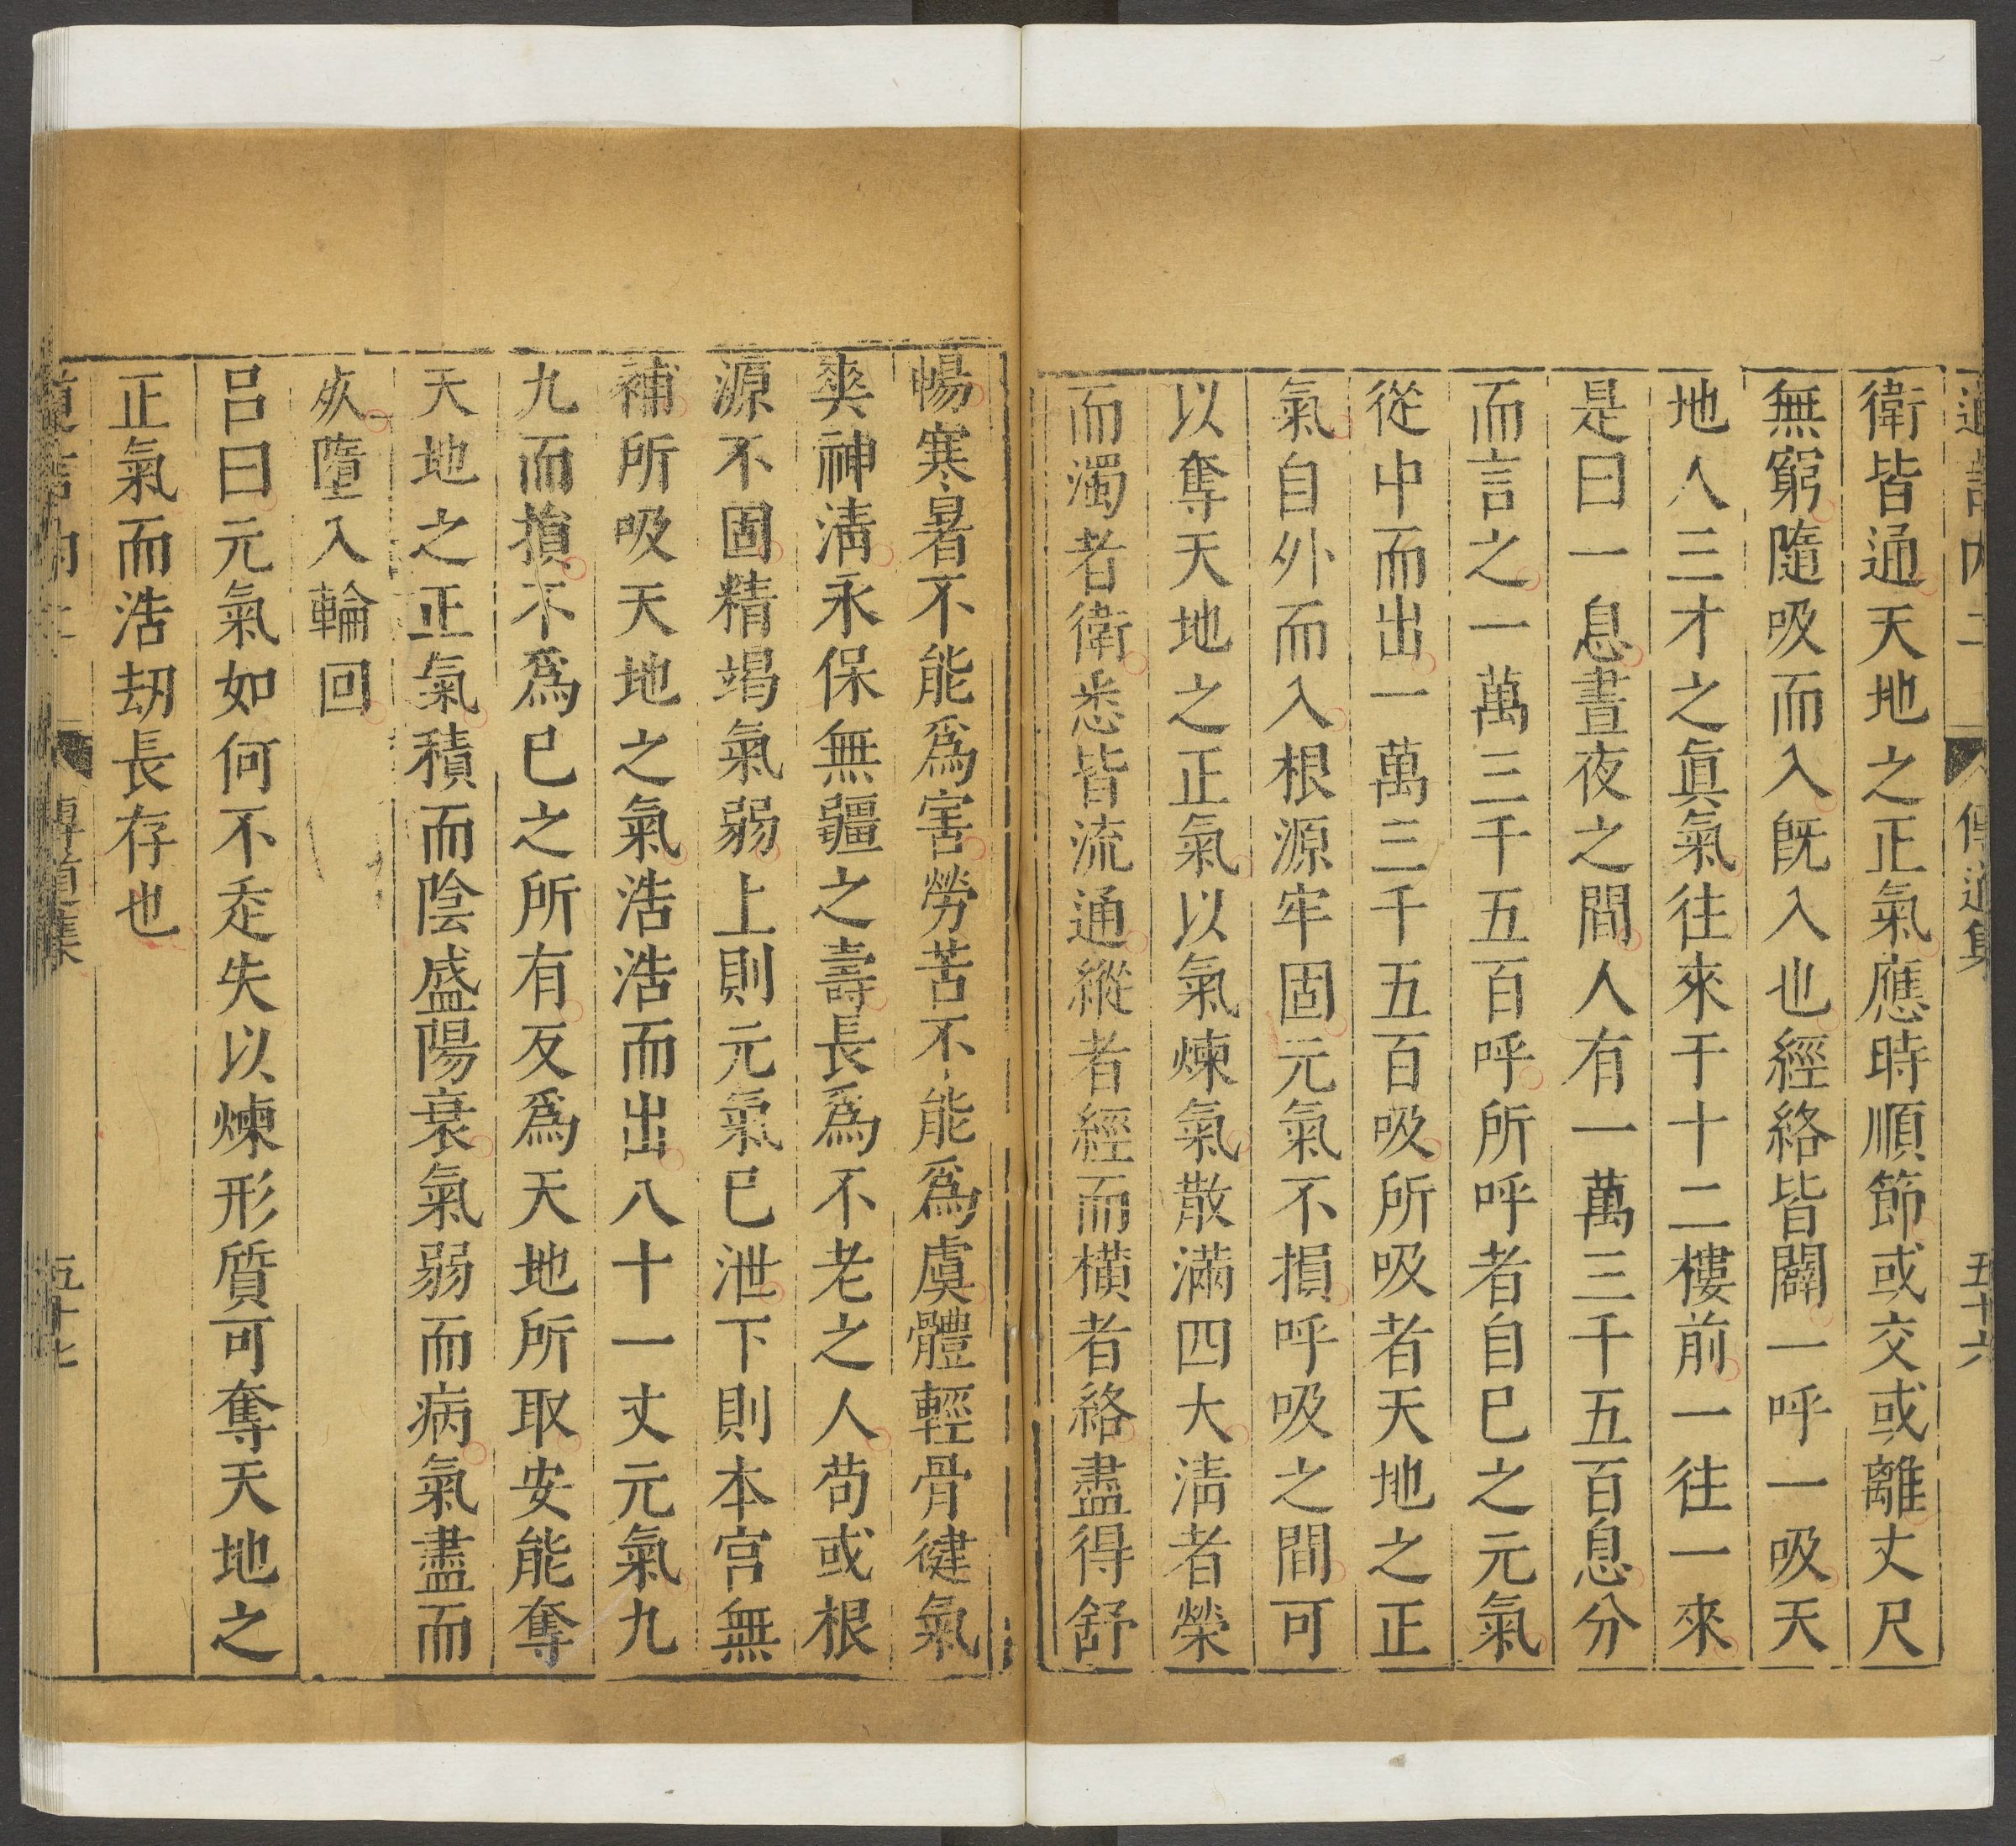 道言內二 傳道集 五十六
衛皆通天地之正氣應時順節或交或離丈尺
無窮隨吸而入旣入也經絡皆闢一呼一吸天
地人三才之眞氣往來于十二樓前一往一來
是曰一息晝夜之間人有一萬三千五百息分
而言之一萬三千五百呼所呼者自巳之元氣
從中而出一萬三千五百吸所吸者天地之正
氣自外而入根源牢固元氣不損呼吸之間可
以奪天地之正氣以氣煉氣散滿四大淸者榮
而濁者衛悉皆流通縱者經而橫者絡盡得舒
暢寒暑不能爲害勞苦不能爲虞體輕骨健氣
爽神淸永保無疆之壽長爲不老之人苟或根
源不固精竭氣弱上則元氣已泄下則本宮無
補所吸天地之氣浩浩而出八十一丈元氣九
九而損不爲巳之所有反爲天地所取安能奪
天地之正氣積而陰盛陽衰氣弱而病氣盡而
㱙墮入輪回
呂曰元氣如何不走失以煉形質可奪天地之
正氣而浩劫長存也
道言內二 傳道集 五十七